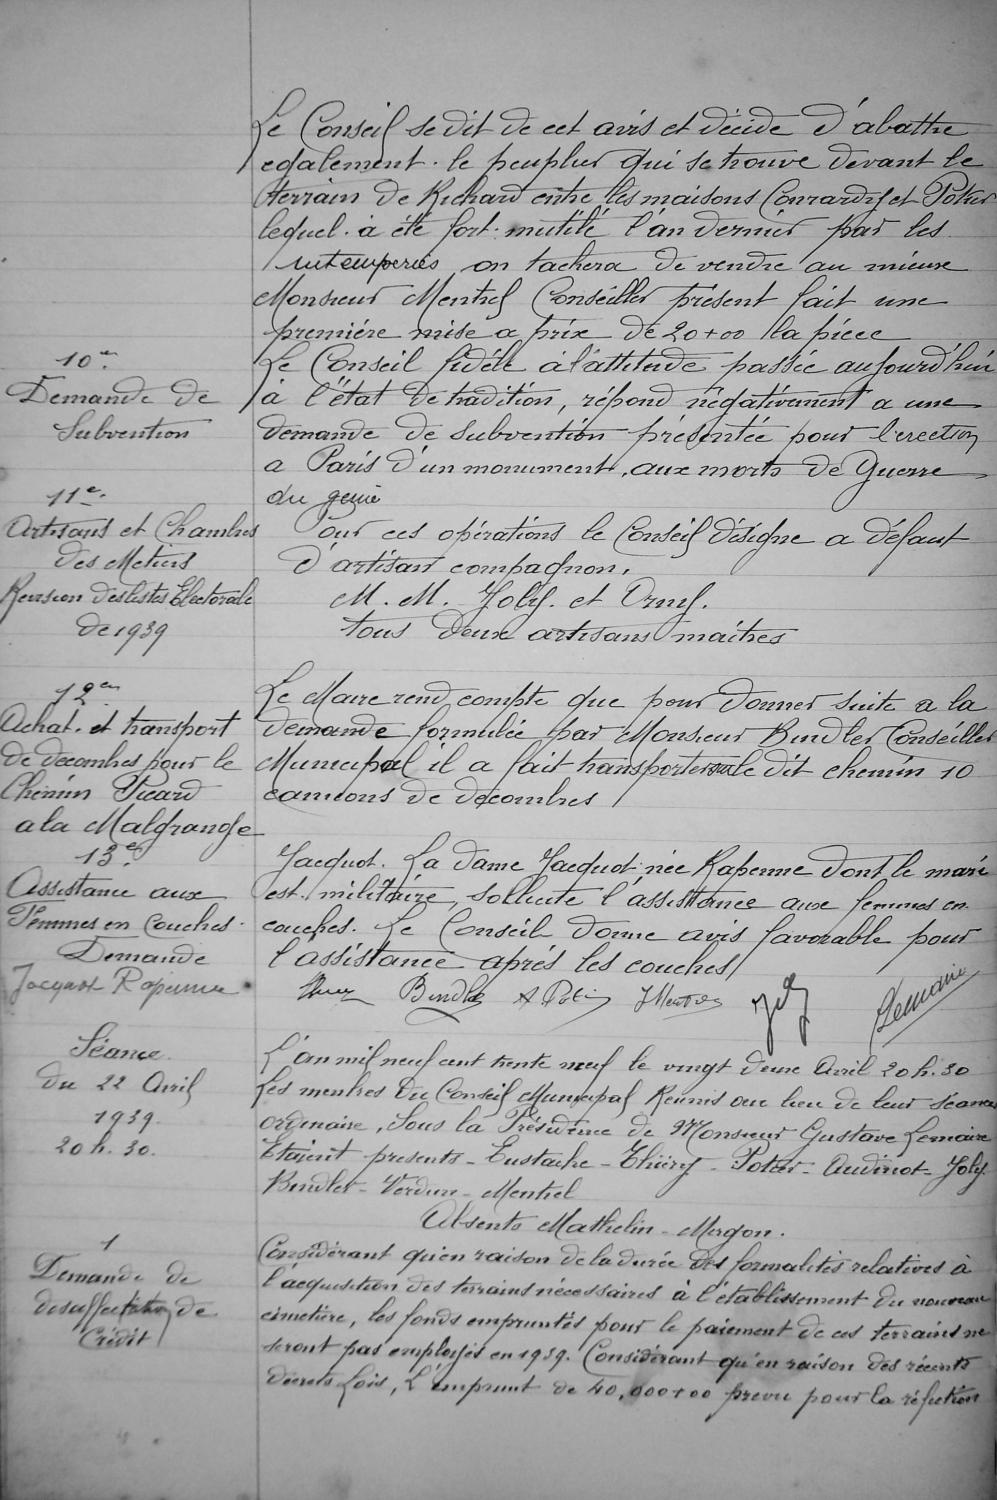 Le Conseil se dit de cet avis et décide d'abattre
egalement. le peuplier qui se trouve devant le
terrain de Richard entre les maisons Conrardy et Potier
lequel. à été fort. mutilé l'an dernier par les
intemperies on tachera de vendre au mieux
Monsieur Mentrel Conséiller présent fait une
premiére mise a prix de 20+00 la piece
10e
Demande de
Subvention
Le Conseil fidéle à l'attitude passée aujourd'hui
à l'état de tradition, répond négativement a une
demande de subvention présentée pour l'erection
a Paris d'un monument, aux morts de Guerre
du genie
11e
Artisans et Chambres
des Metiers
Revision des listes Electorale
de 1939
Pour ces opérations le Conseil désigne a défaut
d'artisan compagnon,
M. M. Joly. et
tous deux artisans maitres
12em
Achat. et transport
de decombres pour le
Chemin Picard
a la Malgrange
Le Maire rend compte que pour donner suite a la
demande formulée par Monsieur Bindler Conséiller
Municipal il a fait transporter sur le dit chemin 10
camions de decombres
13e
Assistance aux
Femmes en Couches.
Demande
Jacquot Rapenne
Jacquot. La dame Jacquot née Rapenne dont le mari
est. militaire, sollicite l'assistance aux femmes en
couches. Le Conseil donne avis favorable pour
l'assistance aprés les couches
Bindler A Potier JMentrel Joly Lemaire
Séance
du 22 Avril
1939.
20 h. 30.
L'an mil neuf cent trente neuf le vingt deux Avril 20 h. 30
Les membres du Conseil Municipal Réunis au lieu de leur séance
ordinaire, Sous la Présidence de Monsieur Gustave Lemaire
Etaient presents - Eustache - Thiery - Potier - Audinot - Joly
Bindler - Verdun - Mentrel
Absents Mathelin - Morgon.
1
Demande de
desaffectation de
Crédit
Considérant qu'en raison de la durée des formalités relatives à
l'acquisition des terrains nécessaires à l'établissement du nouveau
cimetière, les fonds empruntés pour le paiement de ces terrains ne
seront pas employés en 1939. Considérant qu'en raison des récents
décrets Lois, L'emprunt de 40,000+00 prevu pour la réfection